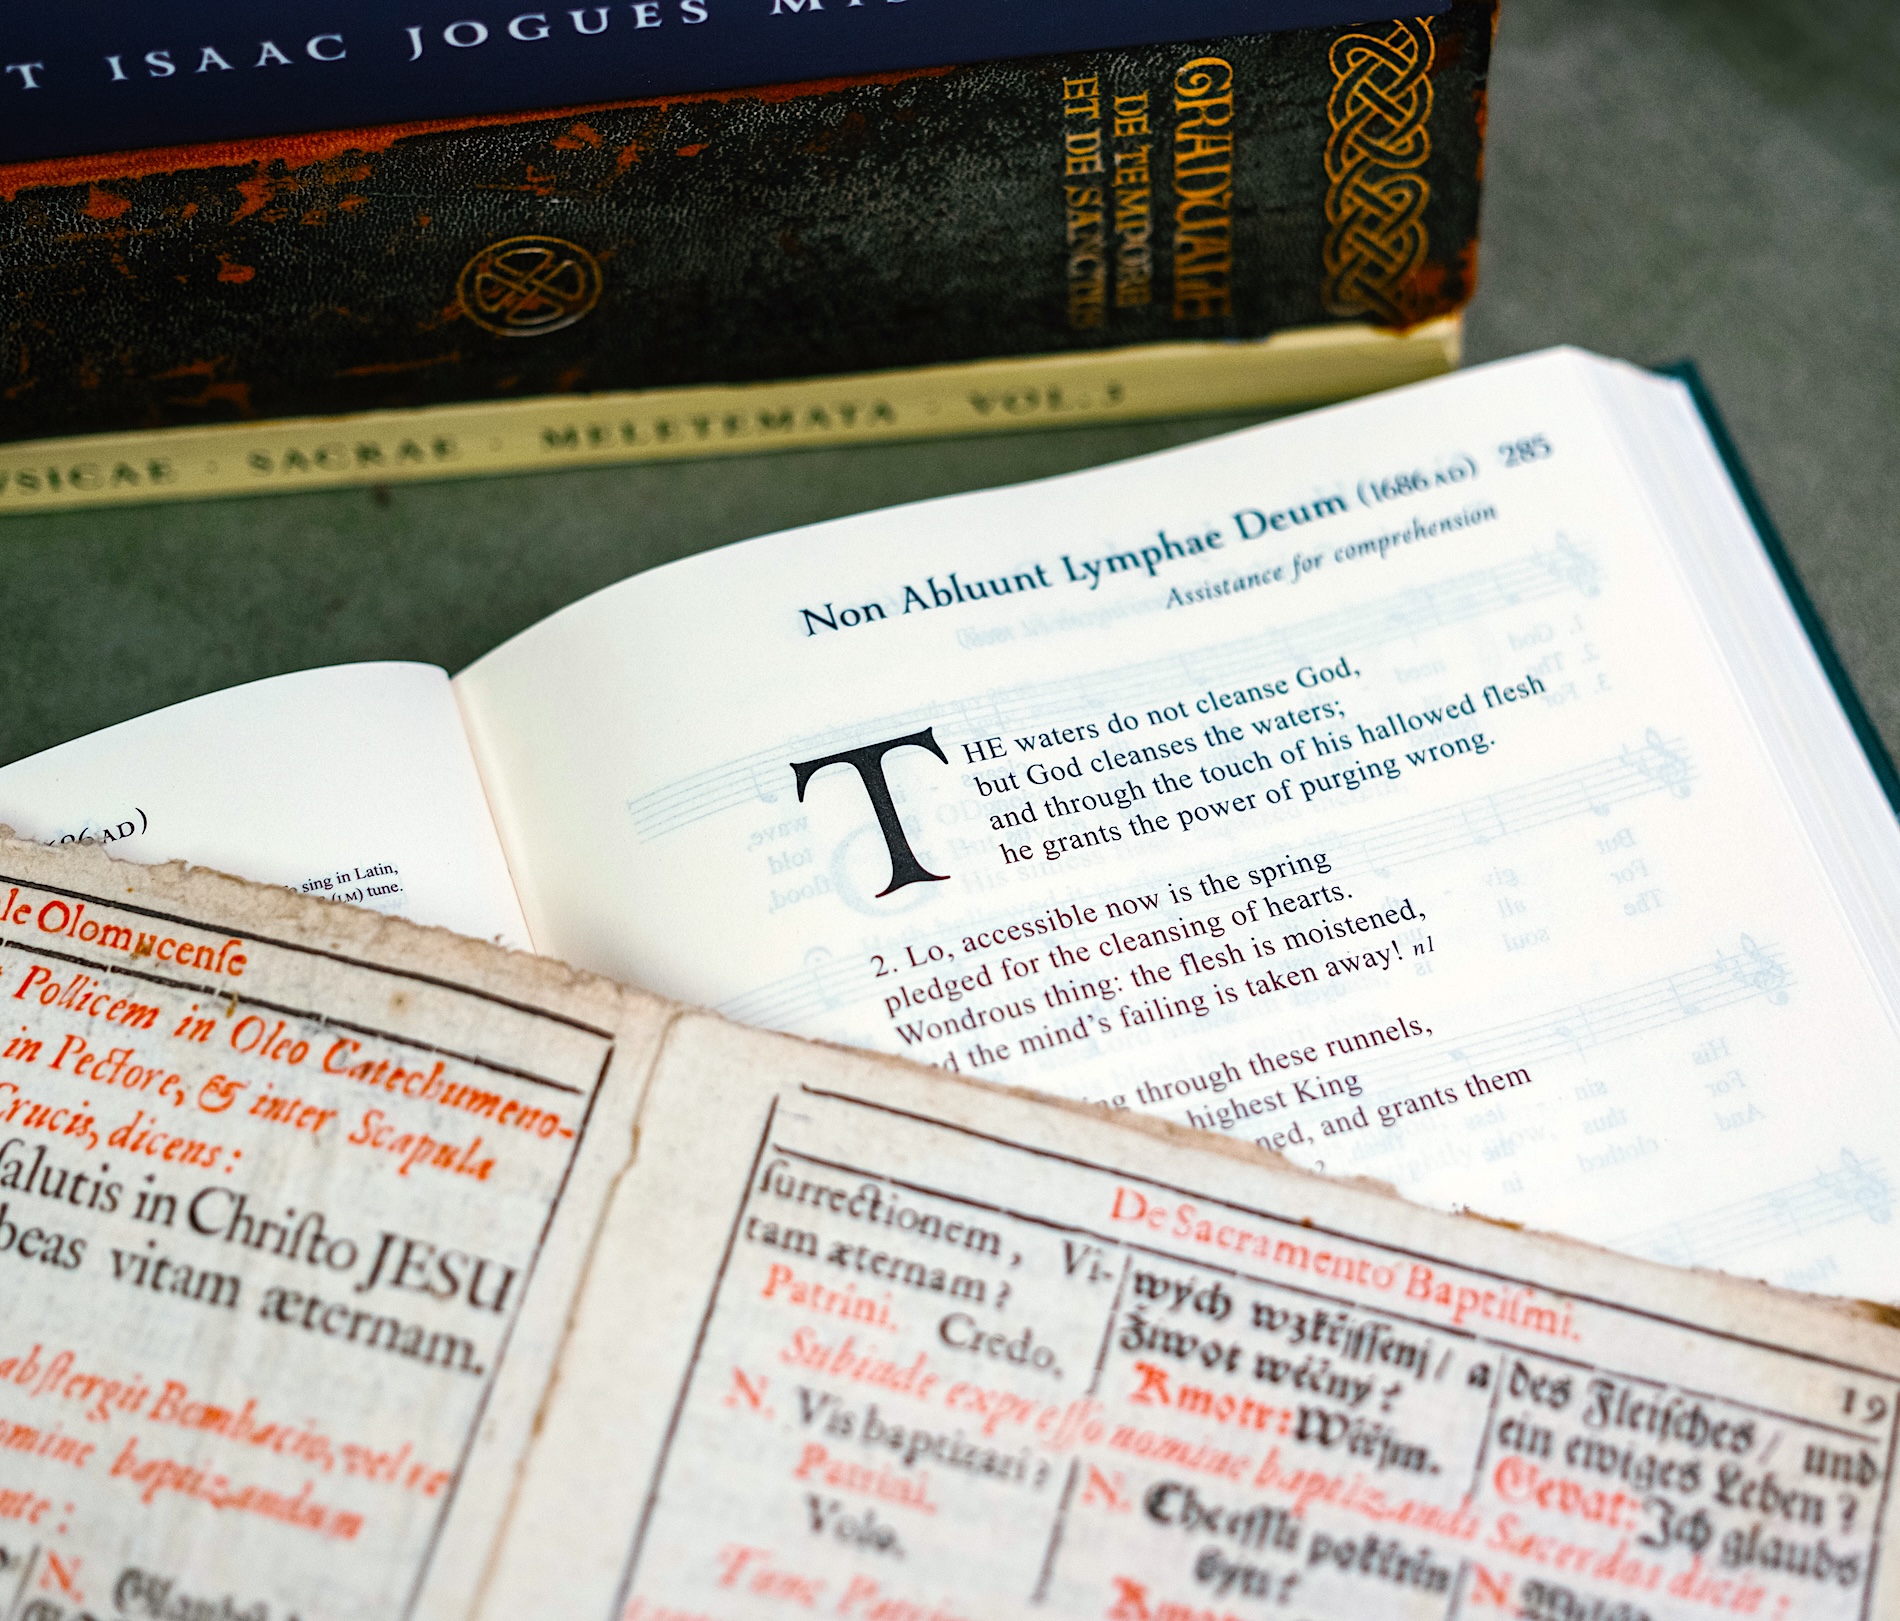 T ISAAC JOGUES MIS
GRADUALE
DE TEMPORE
ET DE SANCTIS
SICAE · SACRAE · MELETEMATA · VOL. 3
Non Abluunt Lymphae Deum (1686 AD) 285
Assistance for comprehension
THE waters do not cleanse God,
but God cleanses the waters;
and through the touch of his hallowed flesh
he grants the power of purging wrong.
2. Lo, accessible now is the spring
pledged for the cleansing of hearts.
Wondrous thing: the flesh is moistened,
d the mind’s failing is taken away! n1
ng through these runnels,
highest King
ned, and grants them
AD)
sing in Latin,
(LM) tune.
le Olomucenſe
Pollicem in Oleo Catechumeno-
in Pectore, & inter Scapula
Crucis, dicens:
ſalutis in Chriſto JESU
beas vitam æternam.
abſtergit Bombacio, vel re
omine baptizandum
nte:
N.
De Sacramento Baptiſmi.
19
ſurrectionem, Vi-
tam æternam?
Patrini. Credo.
Subinde expreſſo nomine baptizandi Sacerdos dicit:
N. Vis baptizari?
Patrini.
Volo.
Tunc
wých wzkřjſſenj / a
Žiwot wěčný?
Kmotr: Wěřjm.
N. Chceſſli pokřtěn
býti?
des Fleiſches / und
ein ewiges Leben?
Gevat: Ich glaube
N.